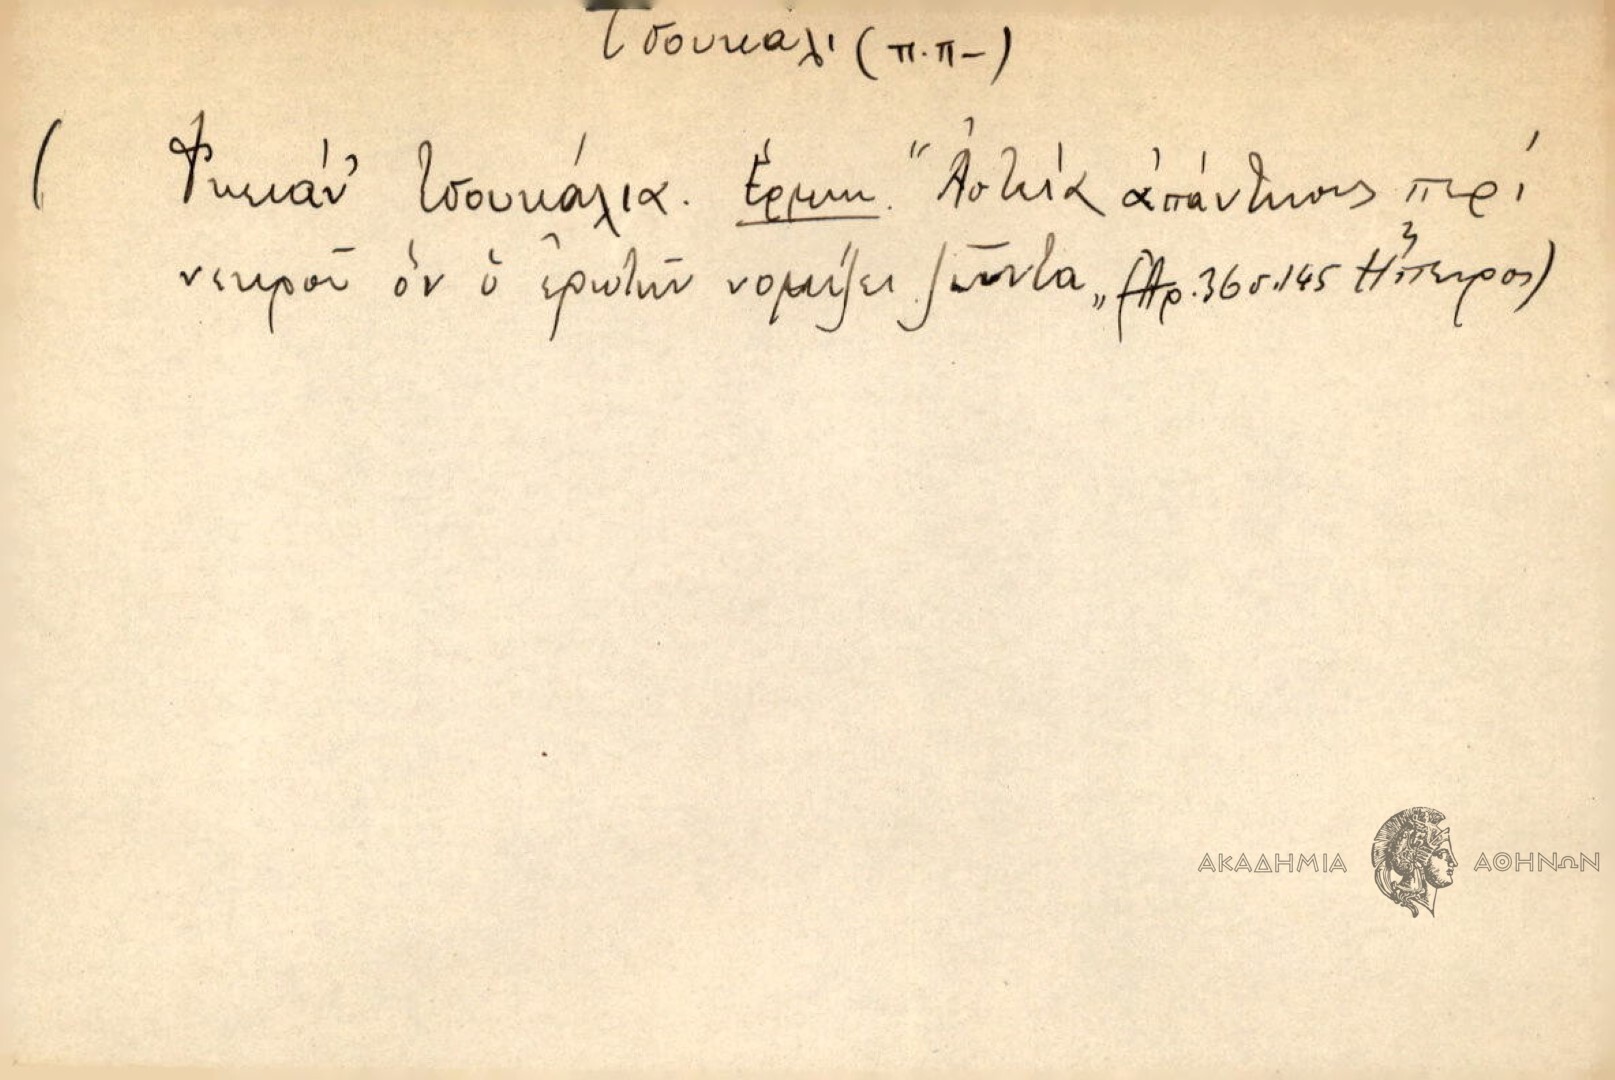 Τσουκάλι (π.π-)
( Φκειάν' τσουκάλια. Ἑρμην. "Ἀστεία ἀπάντησις περὶ
νεκροῦ ὃν ὁ ἐρωτῶν νομίζει ζῶντα„ (Ἀρ.36 σ.145 Ἤπειρος)
ΑΚΑΔΗΜΙΑ ΑΘΗΝΩΝ